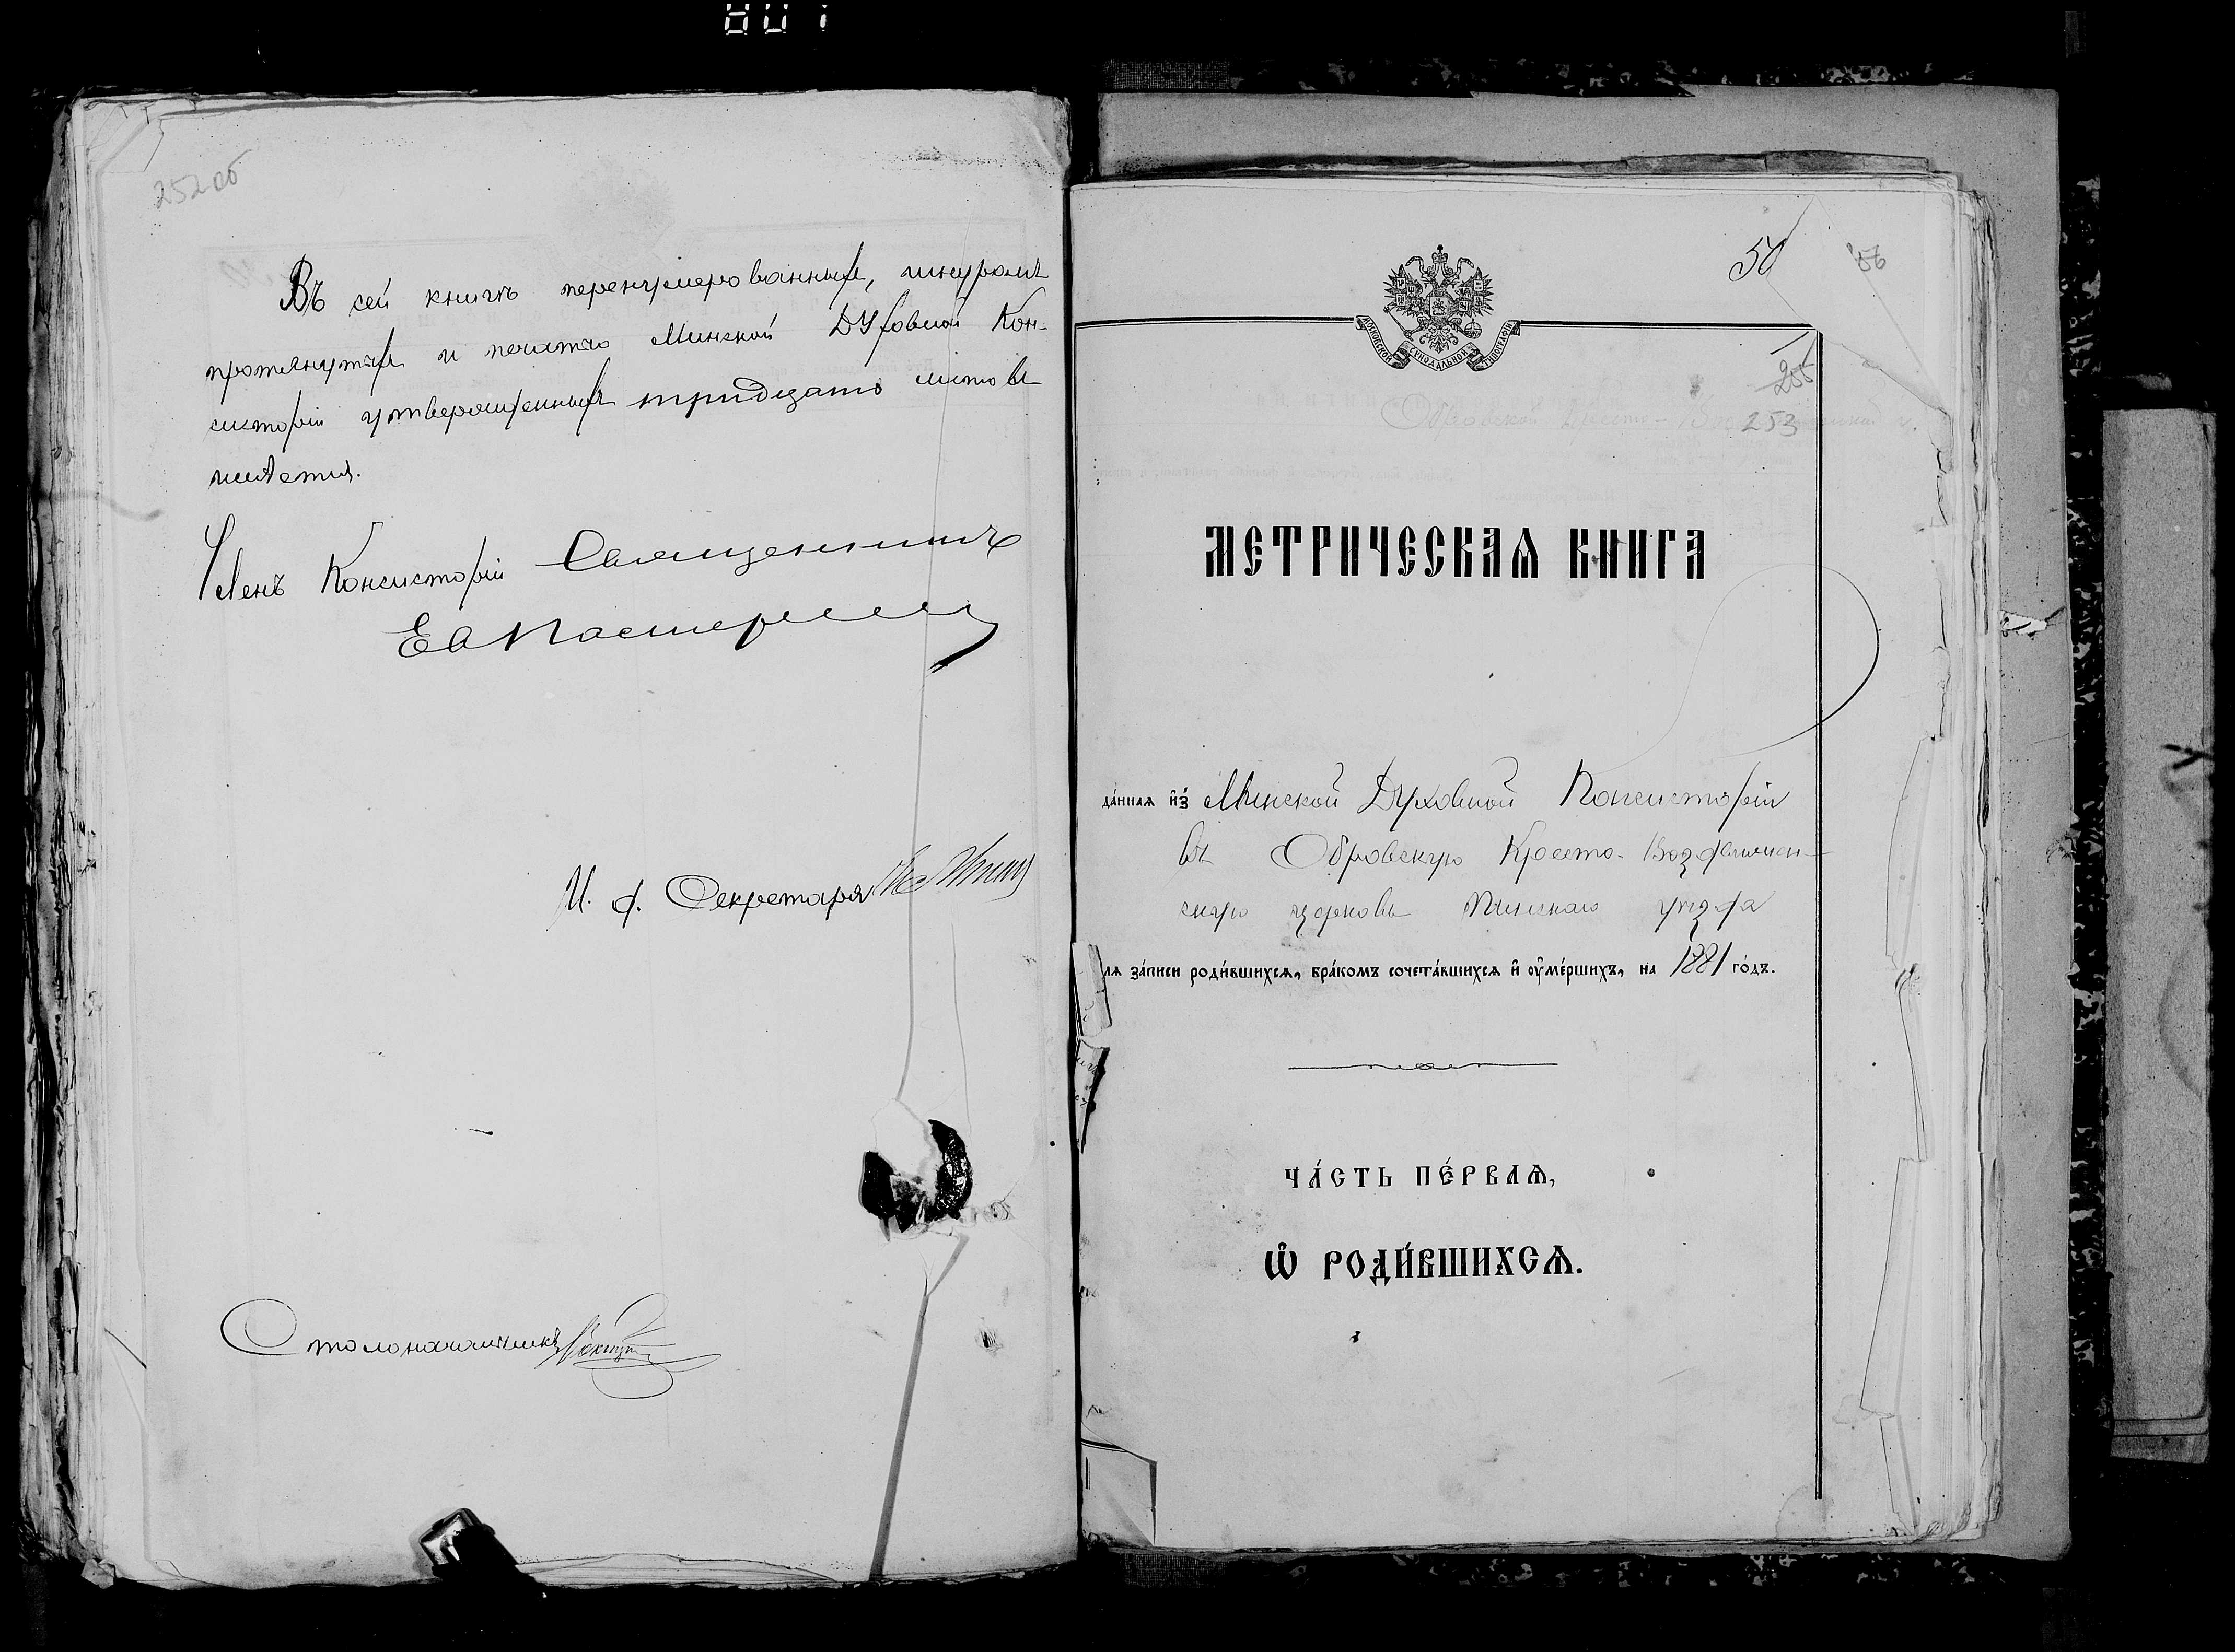 252 об
Въ сей книгѣ перенумерованныхъ, шнуромъ
протянутыхъ и печатью Минской Духовной Кон-
систоріи утвержденныхъ тридцать листовъ
имѣется.
Членъ Консисторіи Священникъ
И. д. Секретаря
Столоначальникъ
50
56
МОСКОВСКОЙ СѴНОДАЛЬНОЙ ТИПОГРАФІИ
255
253
МЕТРИЧЕСКАѦ КНИГА
да́ннаѧ и҆з̾ Минской Духовной Консисторіи
въ Обровскую Кресто-Воздвижен-
скую церковь Пинскаго уѣзда
лѧ за́писи роди́вшихсѧ, бра́комъ сочета́вшихсѧ и҆ ᲂу҆ме́ршихъ, на 1881 го́дъ.
ЧА́СТЬ ПЕ́РВАѦ,
Ѽ РОДИ́ВШИХСѦ.